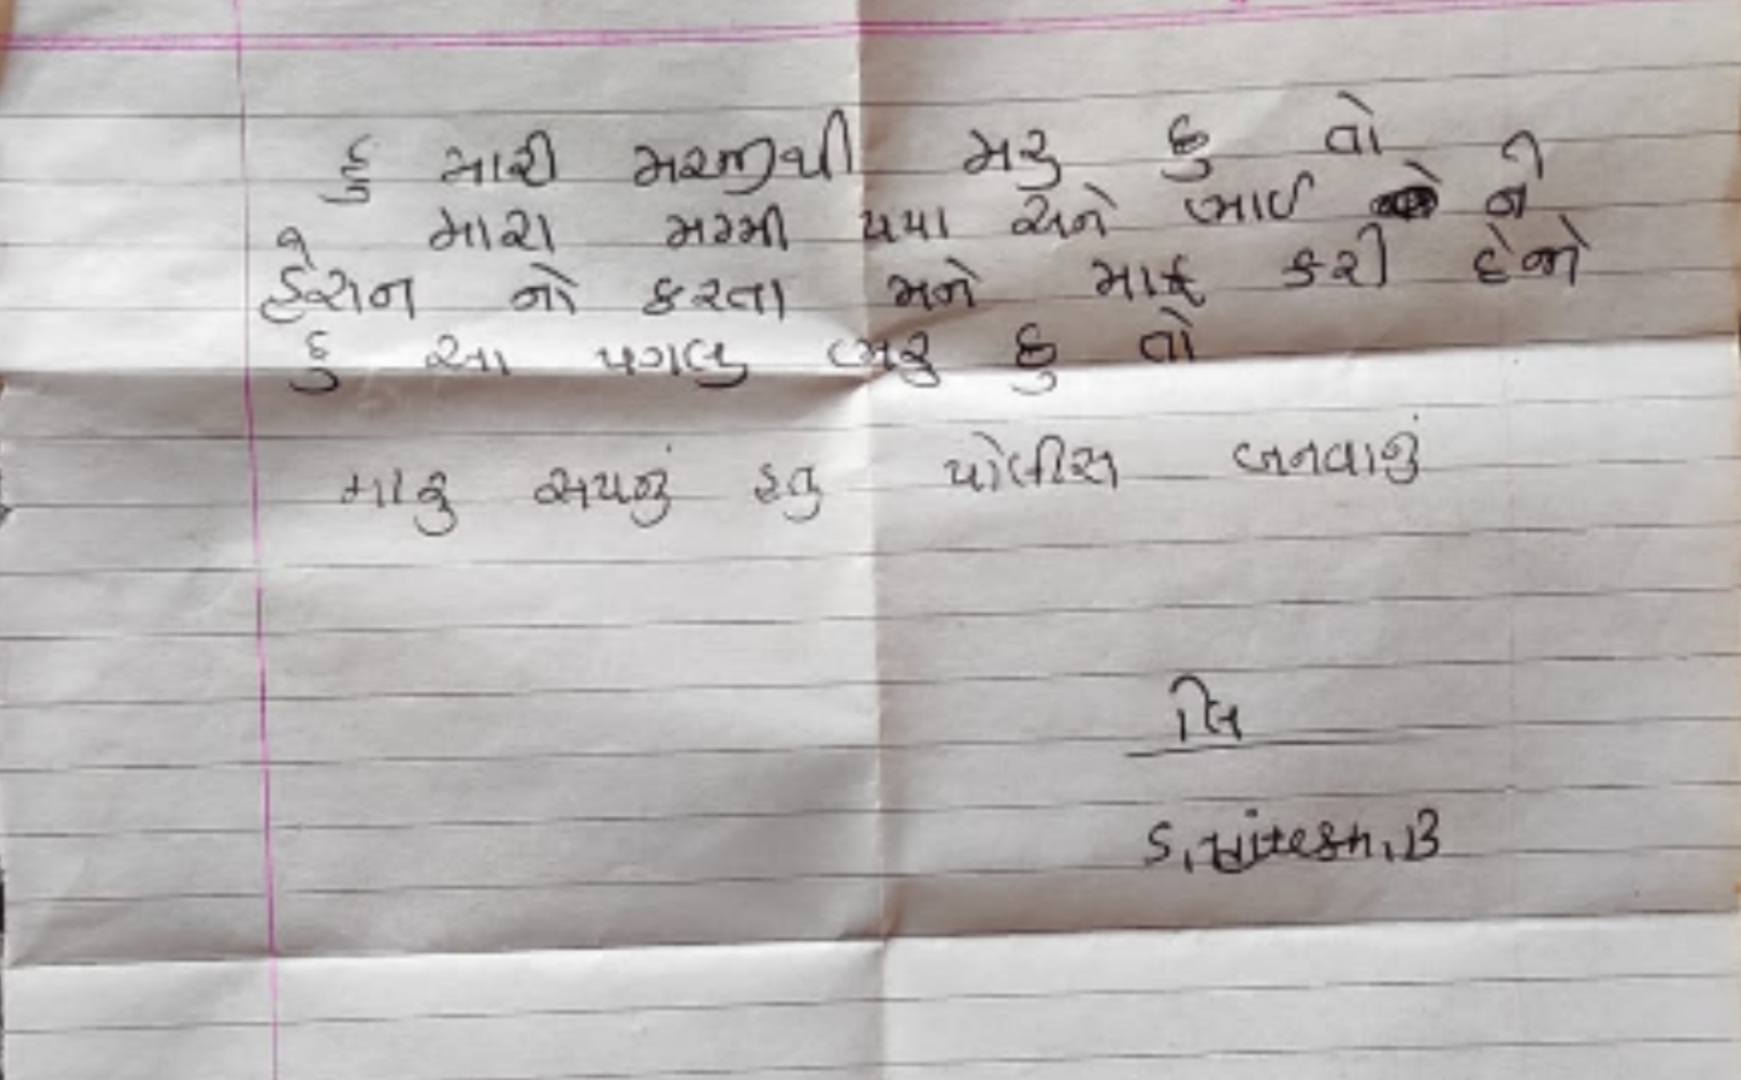 હુ મારી મરજીથી મરુ છુ તો
મારા મમ્મી પપા અને ભાઈ ને
હેરાન નો કરતા મને માફ કરી દેજો
હુ આ પગલુ ભરુ છુ તો
મારુ સપનું હતુ પોલીસ બનવાનું
લિ
S. Hitesh. B